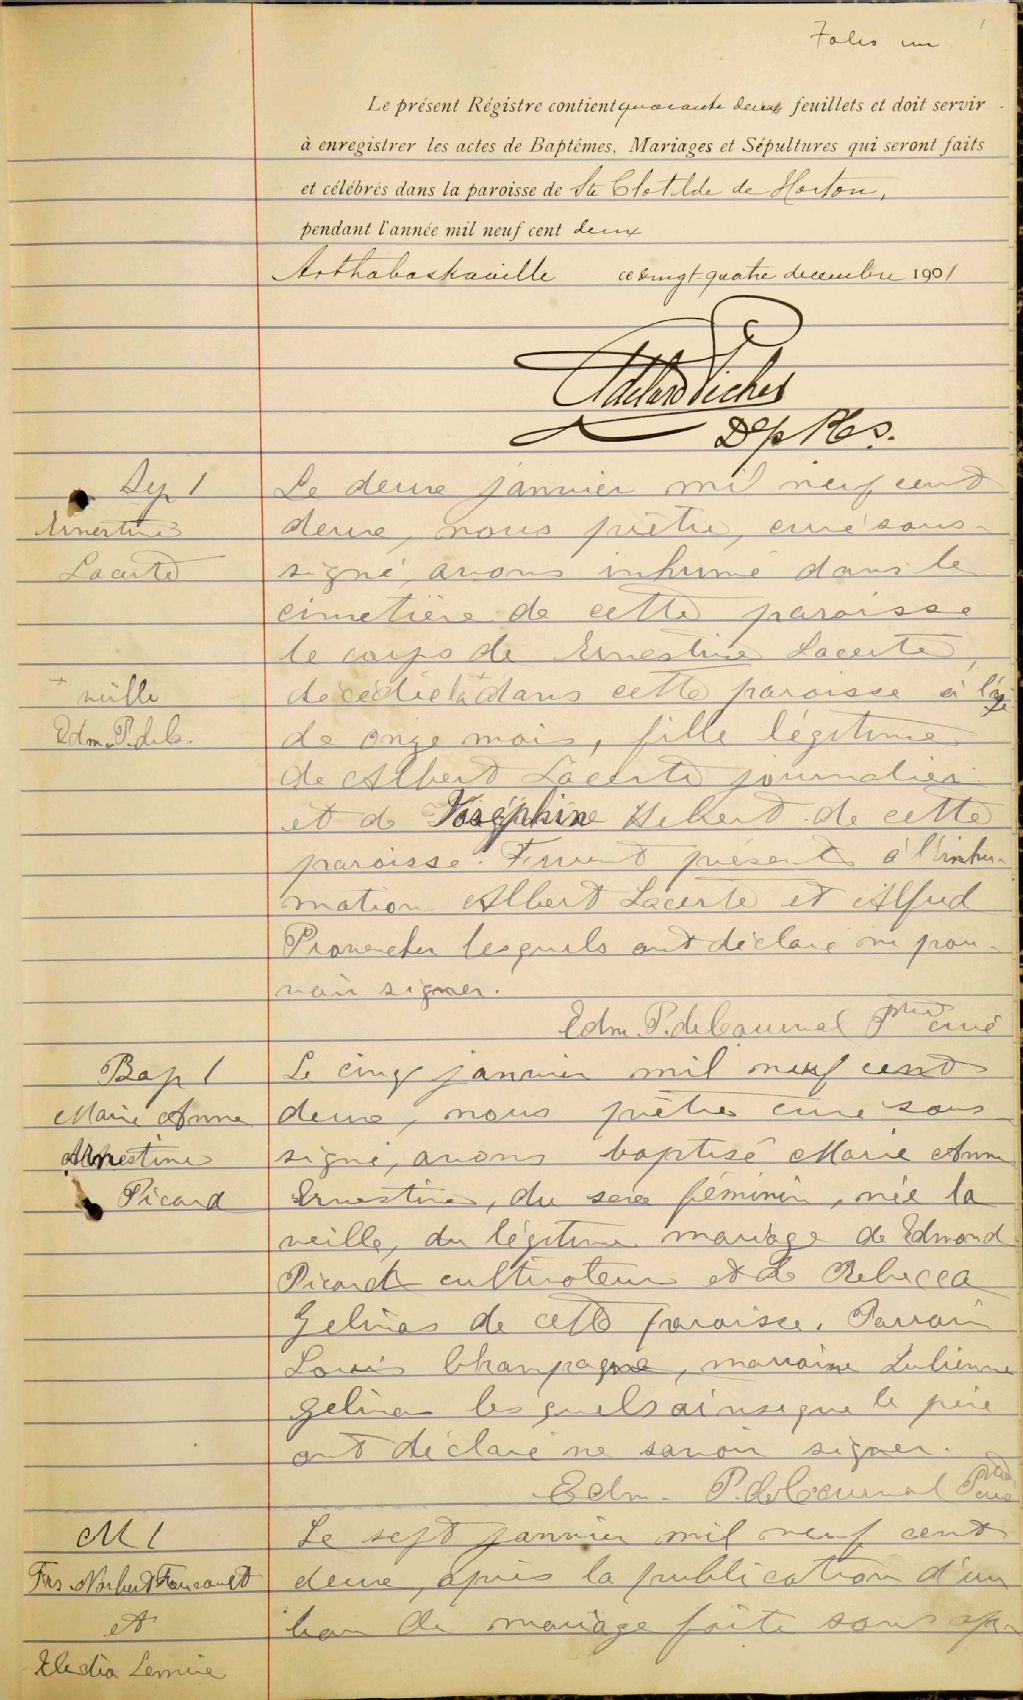 Folio un
Le présent Régistre contient quarante deux feuillets et doit servir
à enregistrer les actes de Baptêmes, Mariages et Sépultures qui seront faits
et célébrés dans la paroisse de Ste Clotilde de Horton,
pendant l'année mil neuf cent deux
Arthabaskaville ce vingt quatre decembre 1901
Dep
Sep 1
Ernestine
Lacerte
Le deux janvier mil neuf cent
deux, nous prêtre, curé sous-
signé, avons inhumé dans le
cimetière de cette paroisse
le corps de Ernestine Lacerte,
décédée la + dans cette paroisse à l'âge
+ veille
Edm. P. de C.
de onze mois, fille légitime
de Albert Lacerte journalier
et de Joséphine Hebert de cette
paroisse. Furent présents à l'inhu-
mation Albert Lacerte et Alfred
Provencher lesquels ont déclaré ne pou-
voir signer.
Edm. P. de Courval Ptre curé
Bap 1
Marie Anne
Ernestine
Picard
Le cinq janvier mil neuf cent
deux, nous prêtre curé sous
signé, avons baptisé Marie Anne
Ernestine, du sexe féminin, née la
veille, du légitime mariage de Edmond
Picard cultivateur et de Rebecca
Gelinas de cette paroisse. Parrain
Louis Champagne, marraine
Gelinas lesquels ainsi que le père
ont déclaré ne savoir signer.
Edm. P. de Courval Ptre curé
M 1
Frs Norbert
et
Elodia Lemire
Le sept janvier mil neuf cent
deux, après la publication d'un
ban de mariage faite sans